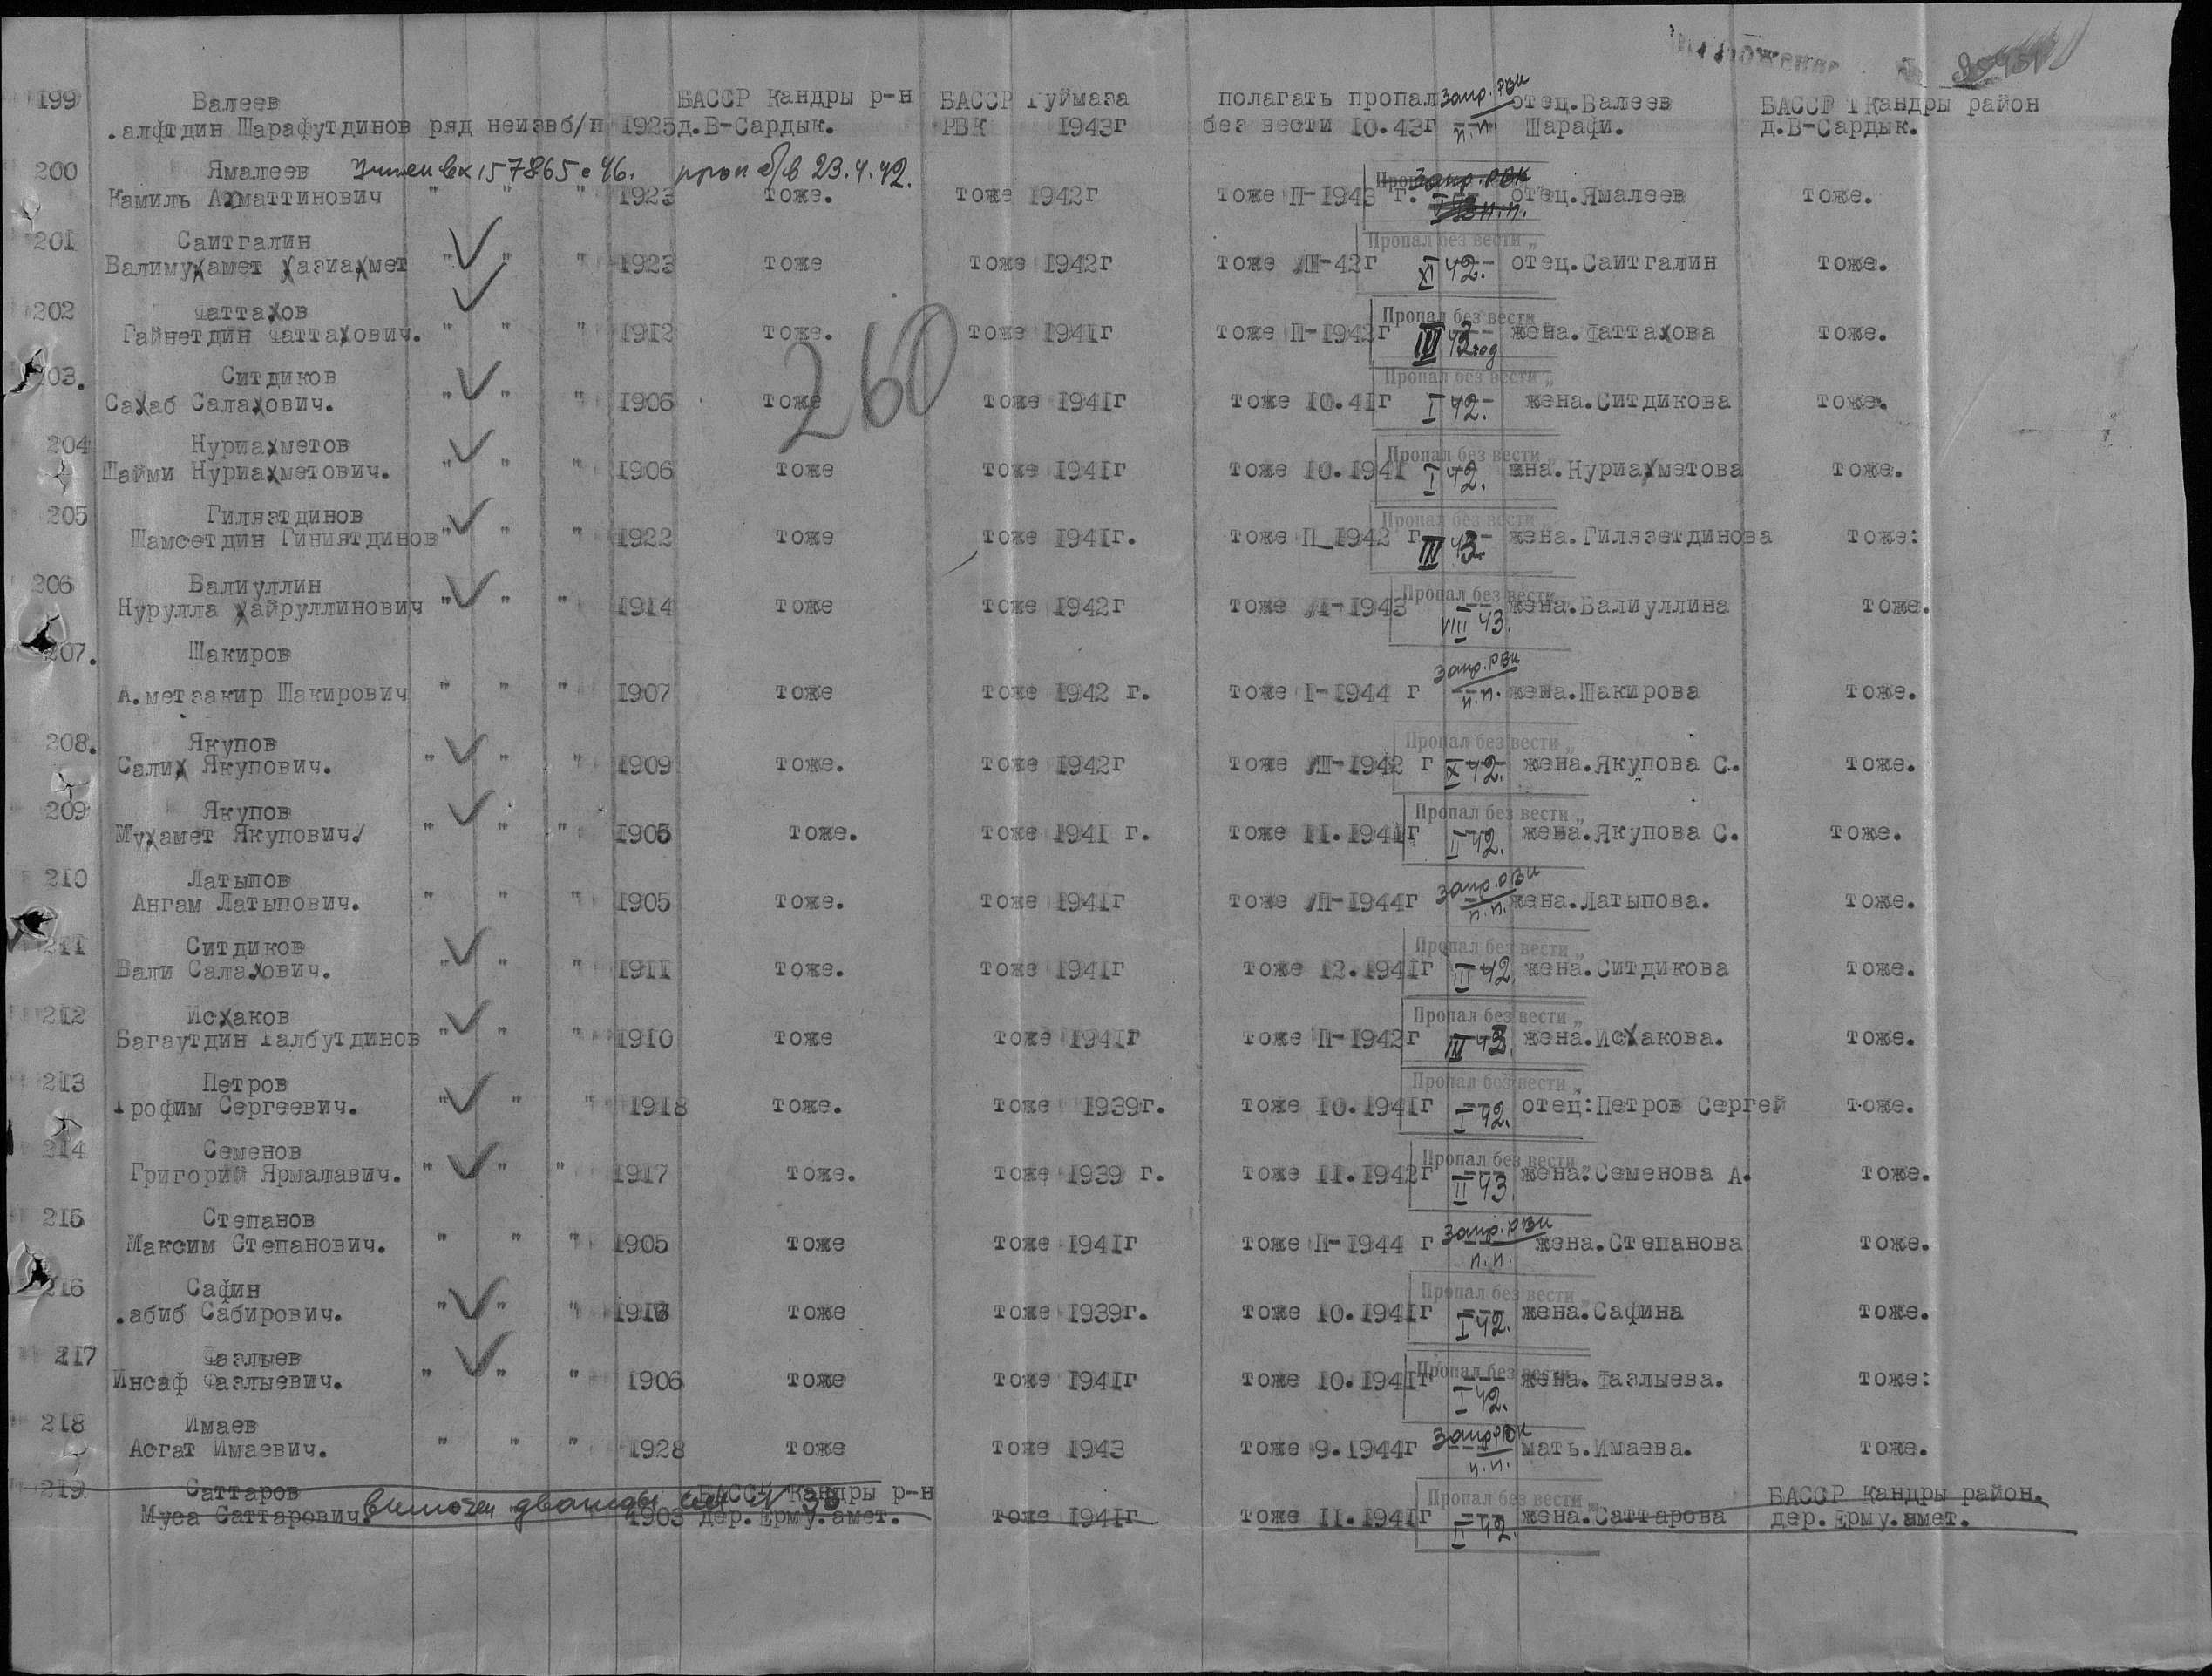 199 Валеев БАССР Кандры р-н БАССР Туймаза полагать пропал запр. РВК отец.Валеев БАССР Т Кандры район
.алфтдин Шарафутдинов ряд неизв б/п 1925 д.В-Сардык. РВК 1943г без вести 10.43г п.п. Шарафи. д.В-Сардык.
200 Ямалеев Учтен вх 157865с46. проп б/в 23.4.42. запр. РВК
Камиль Ахматтинович " " " 1923 тоже. тоже 1942г тоже II-1943 г. п.п. отец.Ямалеев тоже.
201 Саитгалин Пропал без вести
Валимухамет Хазиахмет " " " 1923 тоже тоже 1942г тоже VIII-42г XI 42. отец.Саитгалин тоже.
202 Фаттахов Пропал без вести
Гайнетдин Фаттахович. " " " 1912 тоже. тоже 1941г тоже II-1942г 43 год жена.Фаттахова тоже.
203. Ситдиков Пропал без вести
Сахаб Салахович. " " " 1906 тоже тоже 1941г тоже 10.41г I 42. жена.Ситдикова тоже.
260
204 Нуриахметов Пропал без вести
Шайми Нуриахметович. " " " 1906 тоже тоже 1941г тоже 10.1941 I 42. жна.Нуриахметова тоже.
205 Гилязтдинов Пропал без вести
Шамсетдин Гиниятдинов " " " 1922 тоже тоже 1941г. тоже II_1942 г 43. жена.Гилязетдинова тоже:
206 Валиуллин Пропал без вести
Нурулла Хайруллинович " " " 1914 тоже тоже 1942г тоже VI-1943 VIII 43. жена.Валиуллина тоже.
207. Шакиров запр. РВК
А.метзакир Шакирович " " " 1907 тоже тоже 1942 г. тоже I-1944 г п.п. жена.Шакирова тоже.
208. Якупов Пропал без вести
Салих Якупович. " " " 1909 тоже. тоже 1942г тоже VIII-1942 г X 42. жена.Якупова С. тоже.
209 Якупов Пропал без вести
Мухамет Якупович. " " " 1905 тоже. тоже 1941 г. тоже 11.1941г II 42. жена.Якупова С. тоже.
210 Латыпов запр. РВК
Ангам Латыпович. " " " 1905 тоже. тоже 1941г тоже VII-1944г п.п. жена.Латыпова. тоже.
211 Ситдиков Пропал без вести
Вали Салахович. " " " 1911 тоже. тоже 1941г тоже 12.1941г III 42. жена.Ситдикова тоже.
212 Исхаков Пропал без вести
Багаутдин Галбутдинов " " " 1910 тоже тоже 1941г тоже II-1942г 43. жена.Исхакова. тоже.
213 Петров Пропал без вести
Трофим Сергеевич. " " " 1918 тоже. тоже 1939г. тоже 10.1941г I 42. отец:Петров Сергей тоже.
214 Семенов Пропал без вести
Григорий Ярмалавич. " " " 1917 тоже. тоже 1939 г. тоже 11.1942г II 43. жена.Семенова А. тоже.
215 Степанов запр. РВК
Максим Степанович. " " " 1905 тоже тоже 1941г тоже II-1944 г п.п. жена.Степанова тоже.
216 Сафин Пропал без вести
.абиб Сабирович. " " " тоже тоже 1939г. тоже 10.1941г I 42. жена.Сафина тоже.
217 Фазлыев Пропал без вести
Инсаф Фазлыевич. " " " 1906 тоже тоже 1941г тоже 10.1941г I 42. жена.Фазлыева. тоже:
218 Имаев запр РВК
Асгат Имаевич. " " " 1928 тоже тоже 1943 тоже 9.1944г п.п. мать.Имаева. тоже.
219 Саттаров включен дважды см N 38 БАССР Кандры р-н Пропал без вести БАССР Кандры район.
Муса Саттарович. 1903 дер.Ерму.амет. тоже 1941г тоже 11.1941г II 42. жена.Саттарова дер.Ерму.амет.